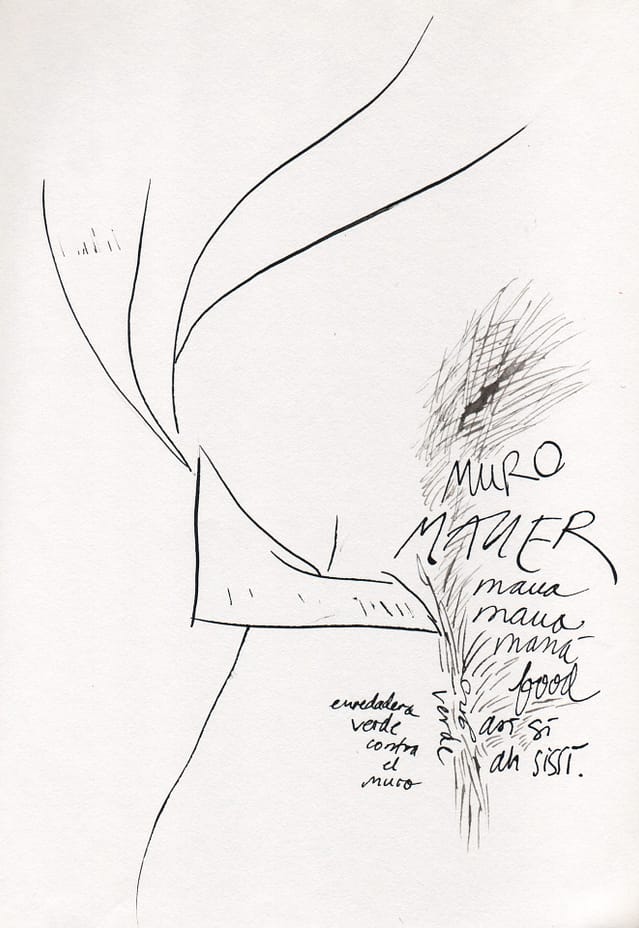 MURO
MAUER
maua
maua
maná
food
así sí
ah sissi.
enredadera
verde
contra
el
muro
verde